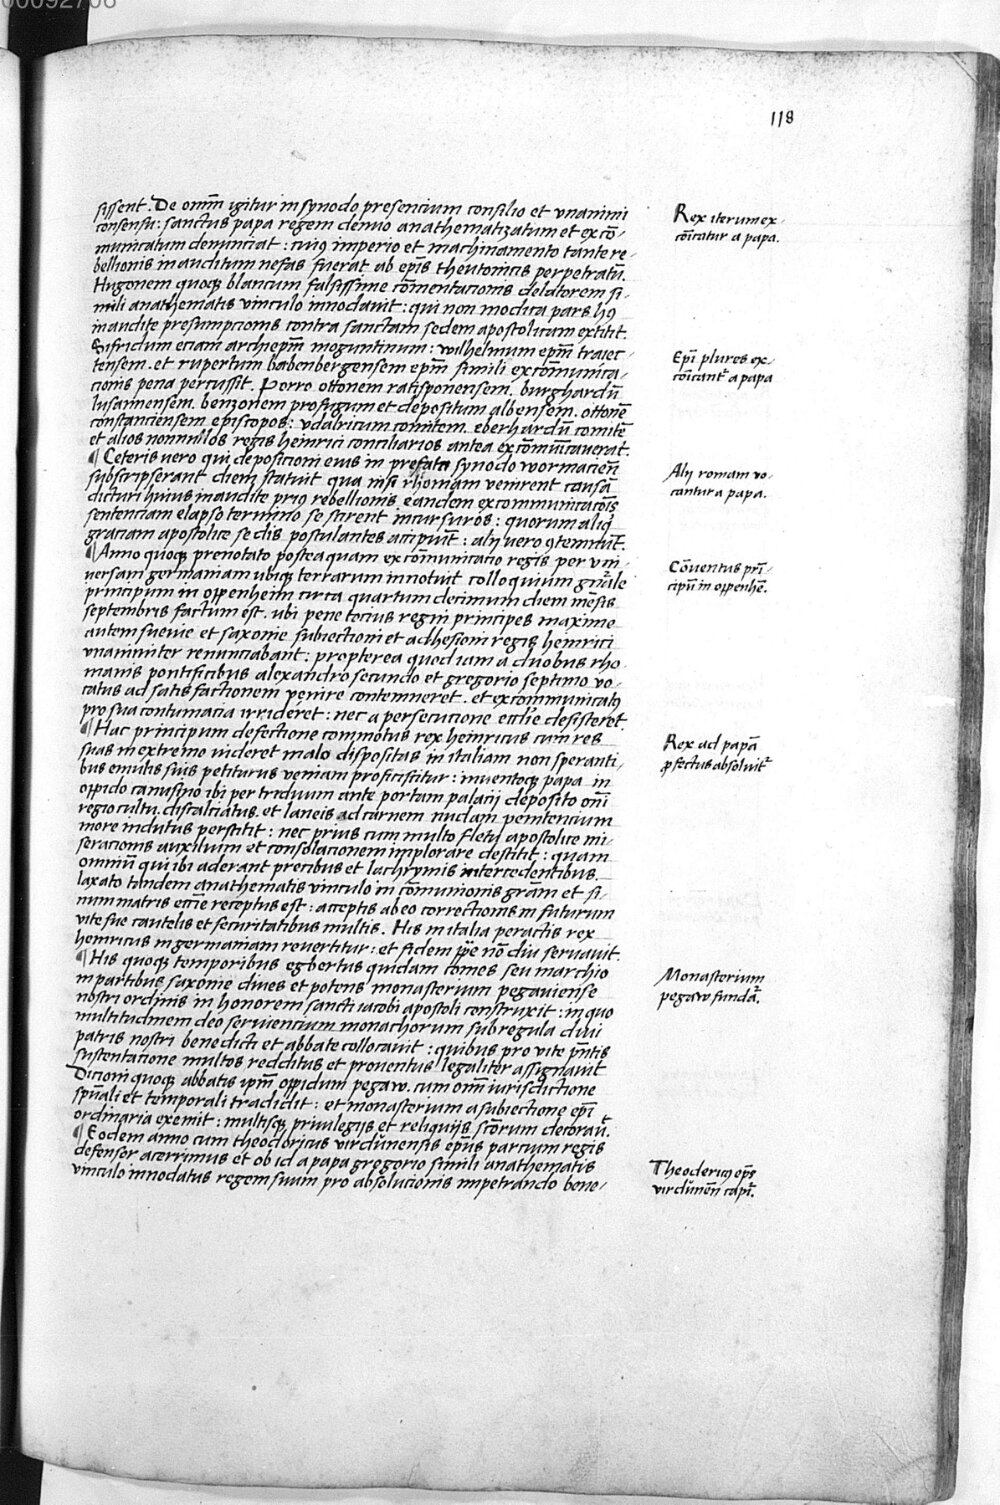 00092706
118
sissent. De omni̅ igitur in synodo presencium consilio et vnanimi
consensu: sanctus papa regem denuo anathematizatum et exco̅-
municatum denunciat: cuiꝰ imperio et machinamento tante re-
bellionis inauditum nefas fuerat ab ep̅is theutonicis perpetratu̅.
Hugonem quoqꝫ blancum falsissime co̅mentacionis delatorem si-
mili anathematis vinculo innodauit: qui non modica pars hꝰ
inaudite presumpcionis contra sanctam sedem apostolicam extitit.
Sifridum eciam archiep̅m moguntinum: wilhelmum ep̅m traiec-
tensem. et rupertum babenbergensem ep̅m simili exco̅munica-
cionis pena percussit. Porro ottonem ratisponensem. burghardu̅
lusannensem. benzonem profugum et depositum albensem. ottone̅
constanciensem episcopos: vdalricum comitem. eberhardu̅ comite̅
et alios nonnullos regis heinrici conciliarios antea exco̅municauerat.
¶ Ceteris uero qui deposicioni eius in prefata synodo wormacien̅
subscripserant diem statuit qua nisi rhomam venirent causa̅
dicturi huius inaudite priꝰ rebellionis eandem excommunicaco̅is
sentenciam elapso termino se scirent incursuros: quorum aliqͥ
graciam apostolice sedis postulantes accipiu̅t: alij uero ꝯtemnu̅t.
¶ Anno quoqꝫ prenotato posteaquam exco̅municacio regis per vni-
uersam germaniam ubiqꝫ terrarum innotuit colloquium gn̅ale
principum in oppenheim circa quartum decimum diem me̅sis
septembris factum est. ubi pene tocius regni principes maxime
autem sueuie et saxonie subiectioni et adhesioni regis heinrici
vnanimiter renunciabant: propterea quod iam a duobus rho
manis pontificibus alexandro secundo et gregorio septimo vo-
catus ad satisfactionem venire contemneret. et excommunicatꝰ
pro sua contumacia irrideret: nec a persecucione eccl̅ie desisteret.
¶ Hac principum defectione commotus rex heinricus cum res
suas in extremo uideret malo dispositas in italiam non speranti-
bus emulis suis petiturus veniam proficiscitur: inuentoqꝫ papa in
oppido canusino ibi per triduum ante portam palacij deposito om̅i
regio cultu. discalciatus. et laneis ad carnem nudam penitencium
more indutus perstitit: nec prius cum multo fletu apostolice mi-
seracionis auxilium et consolacionem implorare destitit: quam
omniu̅ qui ibi aderant precibus et lachrymis intercedentibus.
laxato tandem anathematis vinculo in co̅munionis gra̅m et si-
num matris ecc̅ie receptus est: acceptis ab eo correctionis in futurum
vite sue cautelis et securitatibus multis. His in italia peractis rex
heinricus in germaniam reuertitur: et fidem pp̅e no̅ diu seruauit.
¶ His quoqꝫ temporibus egbertus quidam comes seu marchio
in partibus saxonie diues et potens monasterium pegauiense
nostri ordinis in honorem sancti iacobi apostoli construxit: in quo
multitudinem deo seruiencium monachorum sub regula diui
patris nostri benedicti et abbate collocauit: quibus pro vite pn̅tis
sustentacione multos redditus et prouentus legaliter assignauit
Dicioni quoqꝫ abbatis ip̅m oppidum pegaw. cum omni̅ iurisdictione
spu̅ali et temporali tradidit: et monasterium a subiectione ep̅i
ordinaria exemit: multisqꝫ priuilegijs et reliquijs sc̅orum decorau̅t.
¶ Eodem anno cum theodoricus virdunensis ep̅us parcium regis
defensor acerrimus et ob id a papa gregorio simili anathematis
vinculo innodatus regem suum pro absolucionis impetrando bene-
Rex iterum ex-
co̅icatur a papa.
Ep̅i plures ex-
co̅icant᷑ a papa
Alij romam vo-
cantur a papa.
Co̅uentus pri̅-
cipu̅ in oppenhe̅.
Rex ad papa̅
ꝓfectus absoluit᷑
Monasterium
pegaw funda᷑.
Theodericꝰ ep̅s
virdune̅n capi᷑.